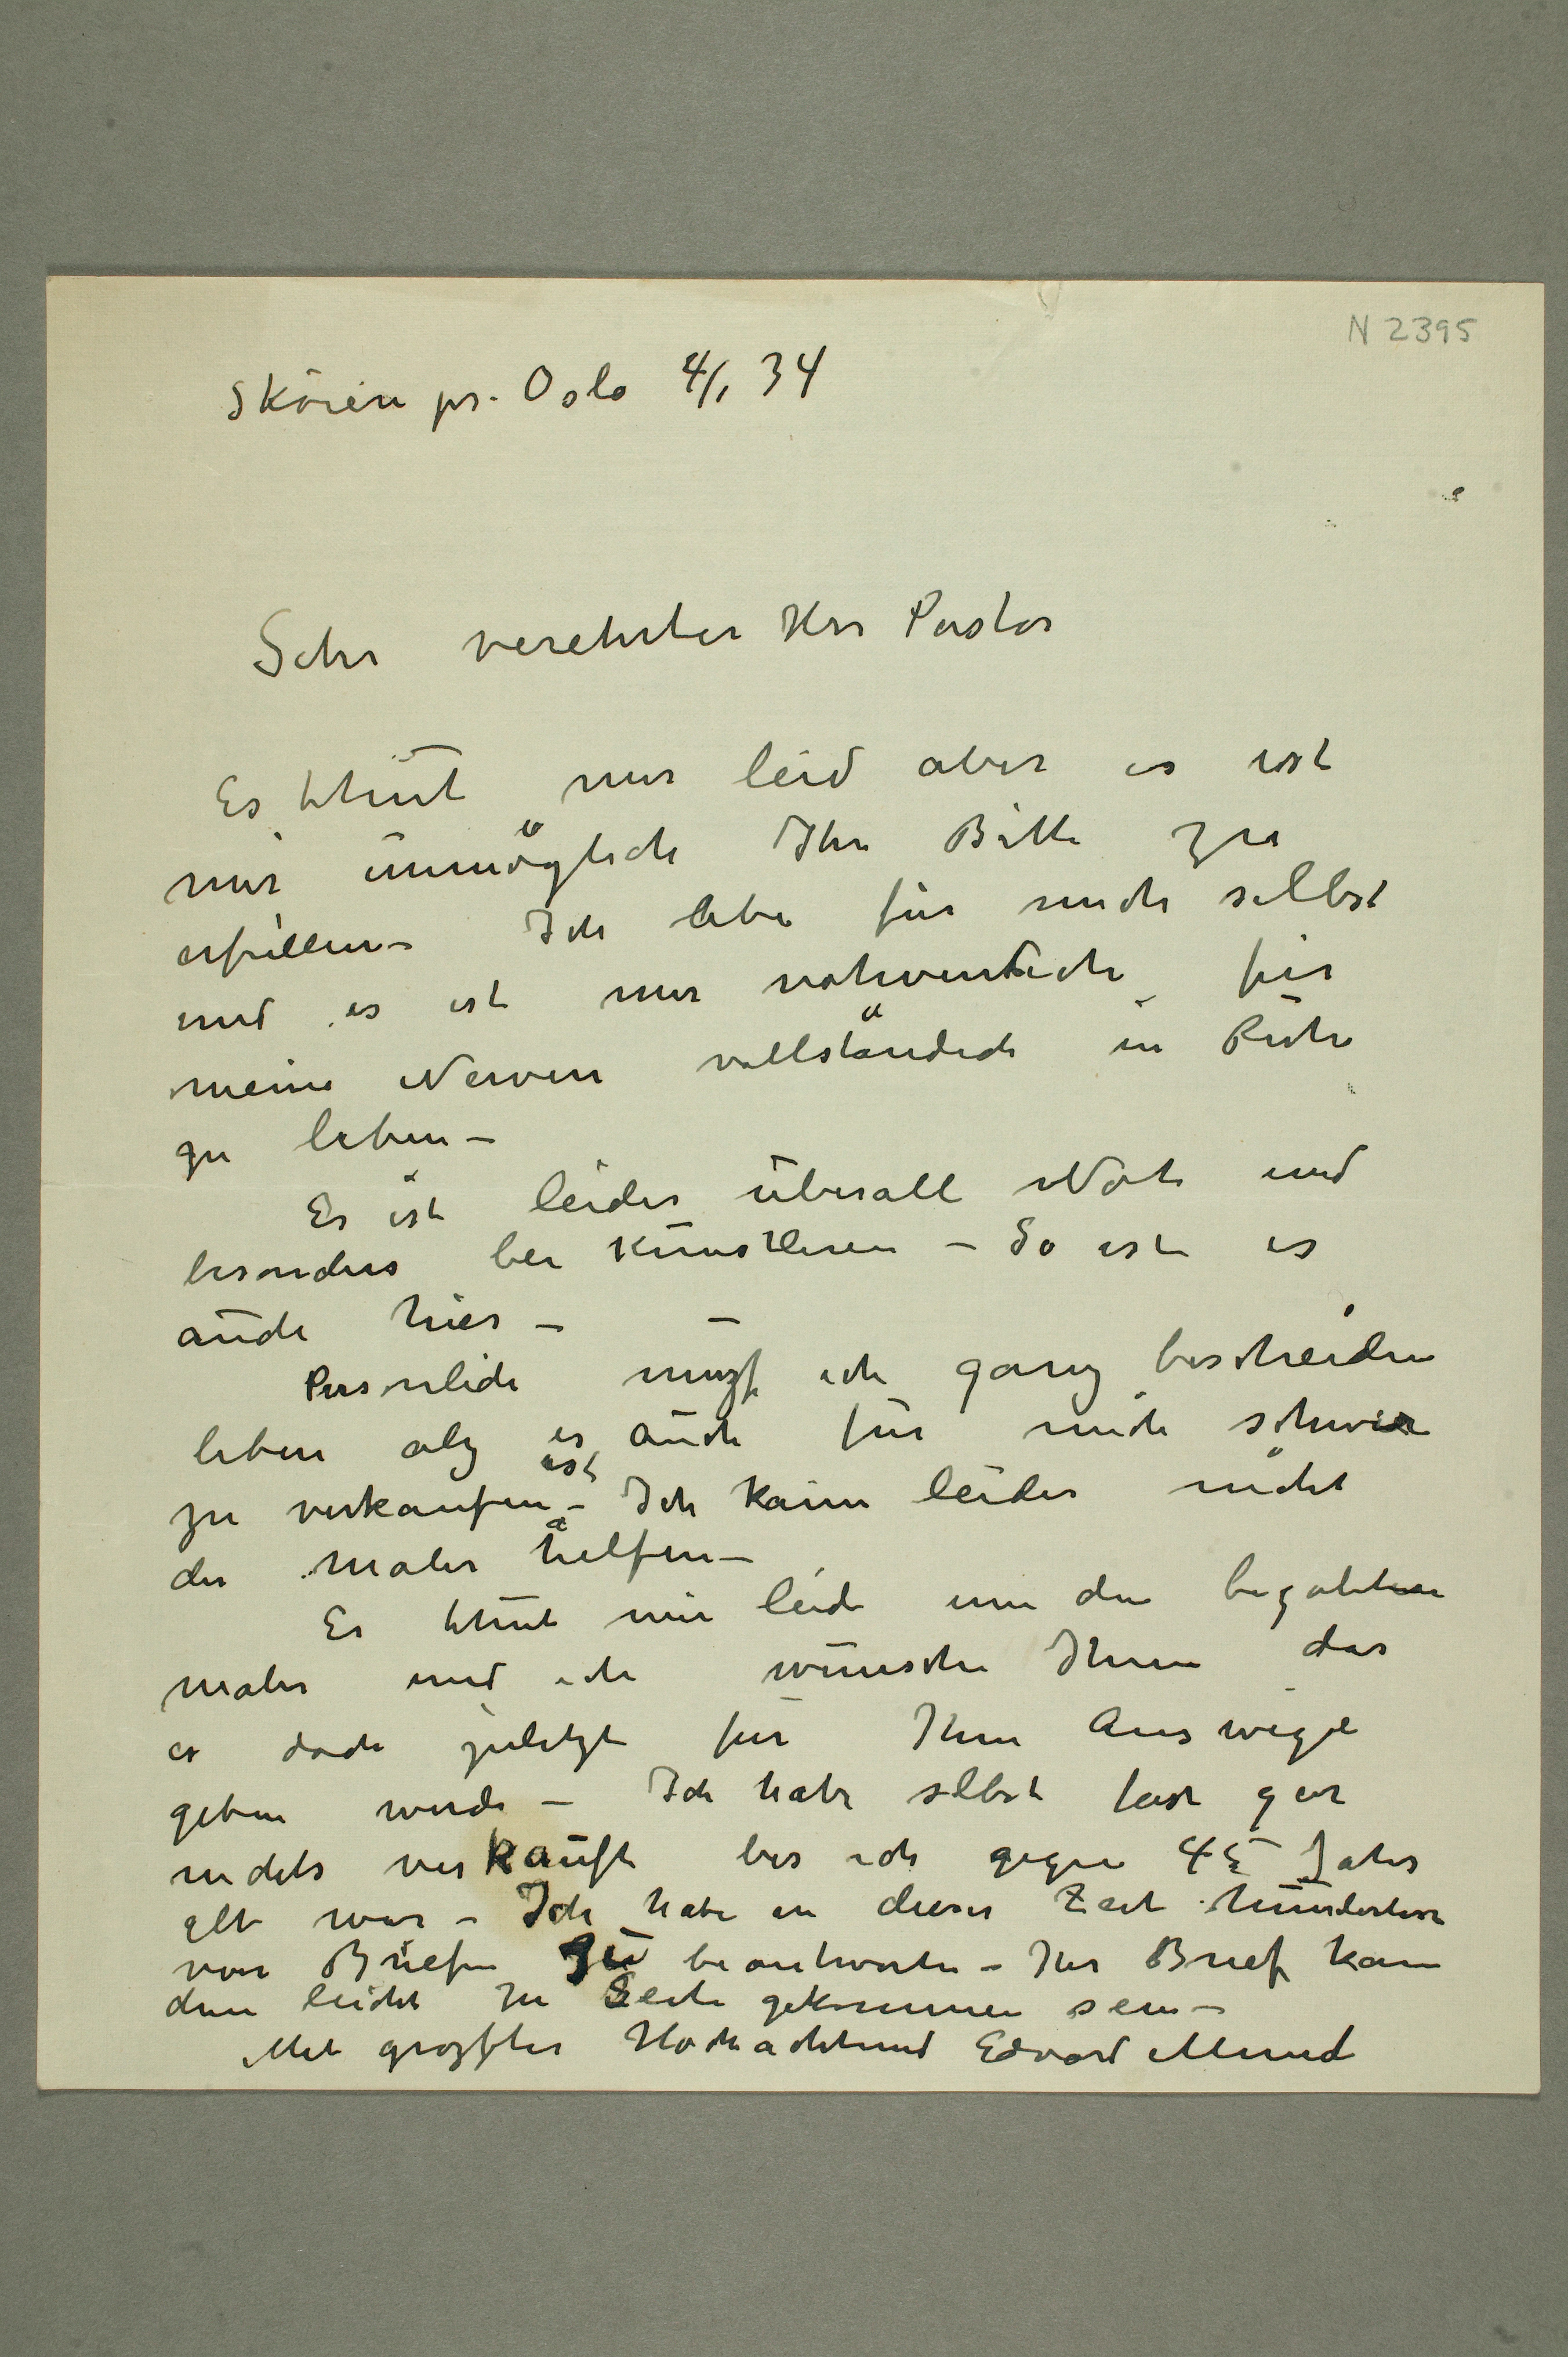 N 2395
Sköien pr. Oslo 4/1 34
Sehr verehrter Herr Pastor
Es thut mir leid aber es ist
mir unmöglich Ihre Bitte zu
erfüllen – Ich lebe für mich selbst
und es ist mir nothwendich für
meine Nerven vollständich in Ruhe
zu leben –
Es ist leider überall Noth und
besonders bei Kunstleren – So ist es
auch hier –
Personlich muszs ich ganz bescheiden
leben alz es ist auch für mich schwer
zu verkaufen – Ich kann leider nicht
der Maler helfen –
Es thut mir leid um den begabten
Maler und ich wünsche Ihnen das
es doch zuletzt für Ihm Auswege
geben werde – Ich habe selbst fast gar
nichts verkauft bis ich gegen 45 Jahr
alt war – Ich habe in dieser Zeit hunderten
von Briefen zu beantworten – Ihr Brief kann
dann leicht zu Seite gekommen sein –
Mit grozster Hochachtund Edvard Munch